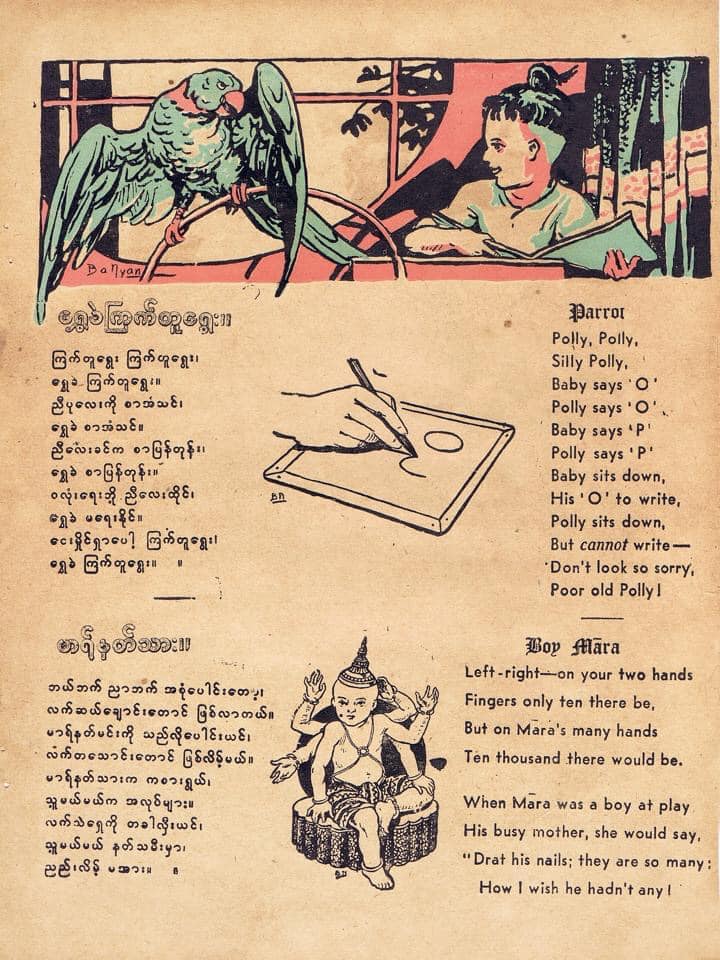 Ba Nyan
ရွှေခဲကြက်တူရွေး။
ကြက်တူရွေး ကြက်တူရွေး၊
ရွှေခဲ ကြက်တူရွေး။
ညီပုလေးကို စာအံသင်၊
ရွှေခဲ စာအံသင်။
ညီလေးခင်က စာပြန်တုန်း၊
ရွှေခဲ စာပြန်တုန်း။
ဝလုံးရေးဘို့ ညီလေးထိုင်၊
ရွှေခဲ မရေးနိုင်။
ငေးမှိုင်ရှာပေါ့ ကြက်တူရွေး၊
ရွှေခဲ ကြက်တူရွေး။ ။
BN
Parrot
Polly, Polly,
Silly Polly,
Baby says 'O'
Polly says 'O'
Baby says 'P'
Polly says 'P'
Baby sits down,
His 'O' to write,
Polly sits down,
But cannot write—
Don't look so sorry,
Poor old Polly!
မာရ်နတ်သား။
ဘယ်ဘက် ညာဘက် အစုံပေါင်းတော့၊
လက်ဆယ်ချောင်းတောင် ဖြစ်လာတယ်။
မာရ်နတ်မင်းကို သည်လိုပေါင်းယင်၊
လက်တသောင်းတောင် ဖြစ်လိမ့်မယ်။
မာရ်နတ်သားက ကစားရွယ်၊
သူ့မယ်မယ်က အလုပ်များ။
လက်သဲရှေကို တခါလှီးယင်၊
သူ့မယ်မယ် နတ်သမီးမှာ၊
ညည်းလိမ့် မအား။ ။
Boy Māra
Left-right—on your two hands
Fingers only ten there be,
But on Māra's many hands
Ten thousand there would be.
When Māra was a boy at play
His busy mother, she would say,
"Drat his nails; they are so many:
How I wish he hadn't any!